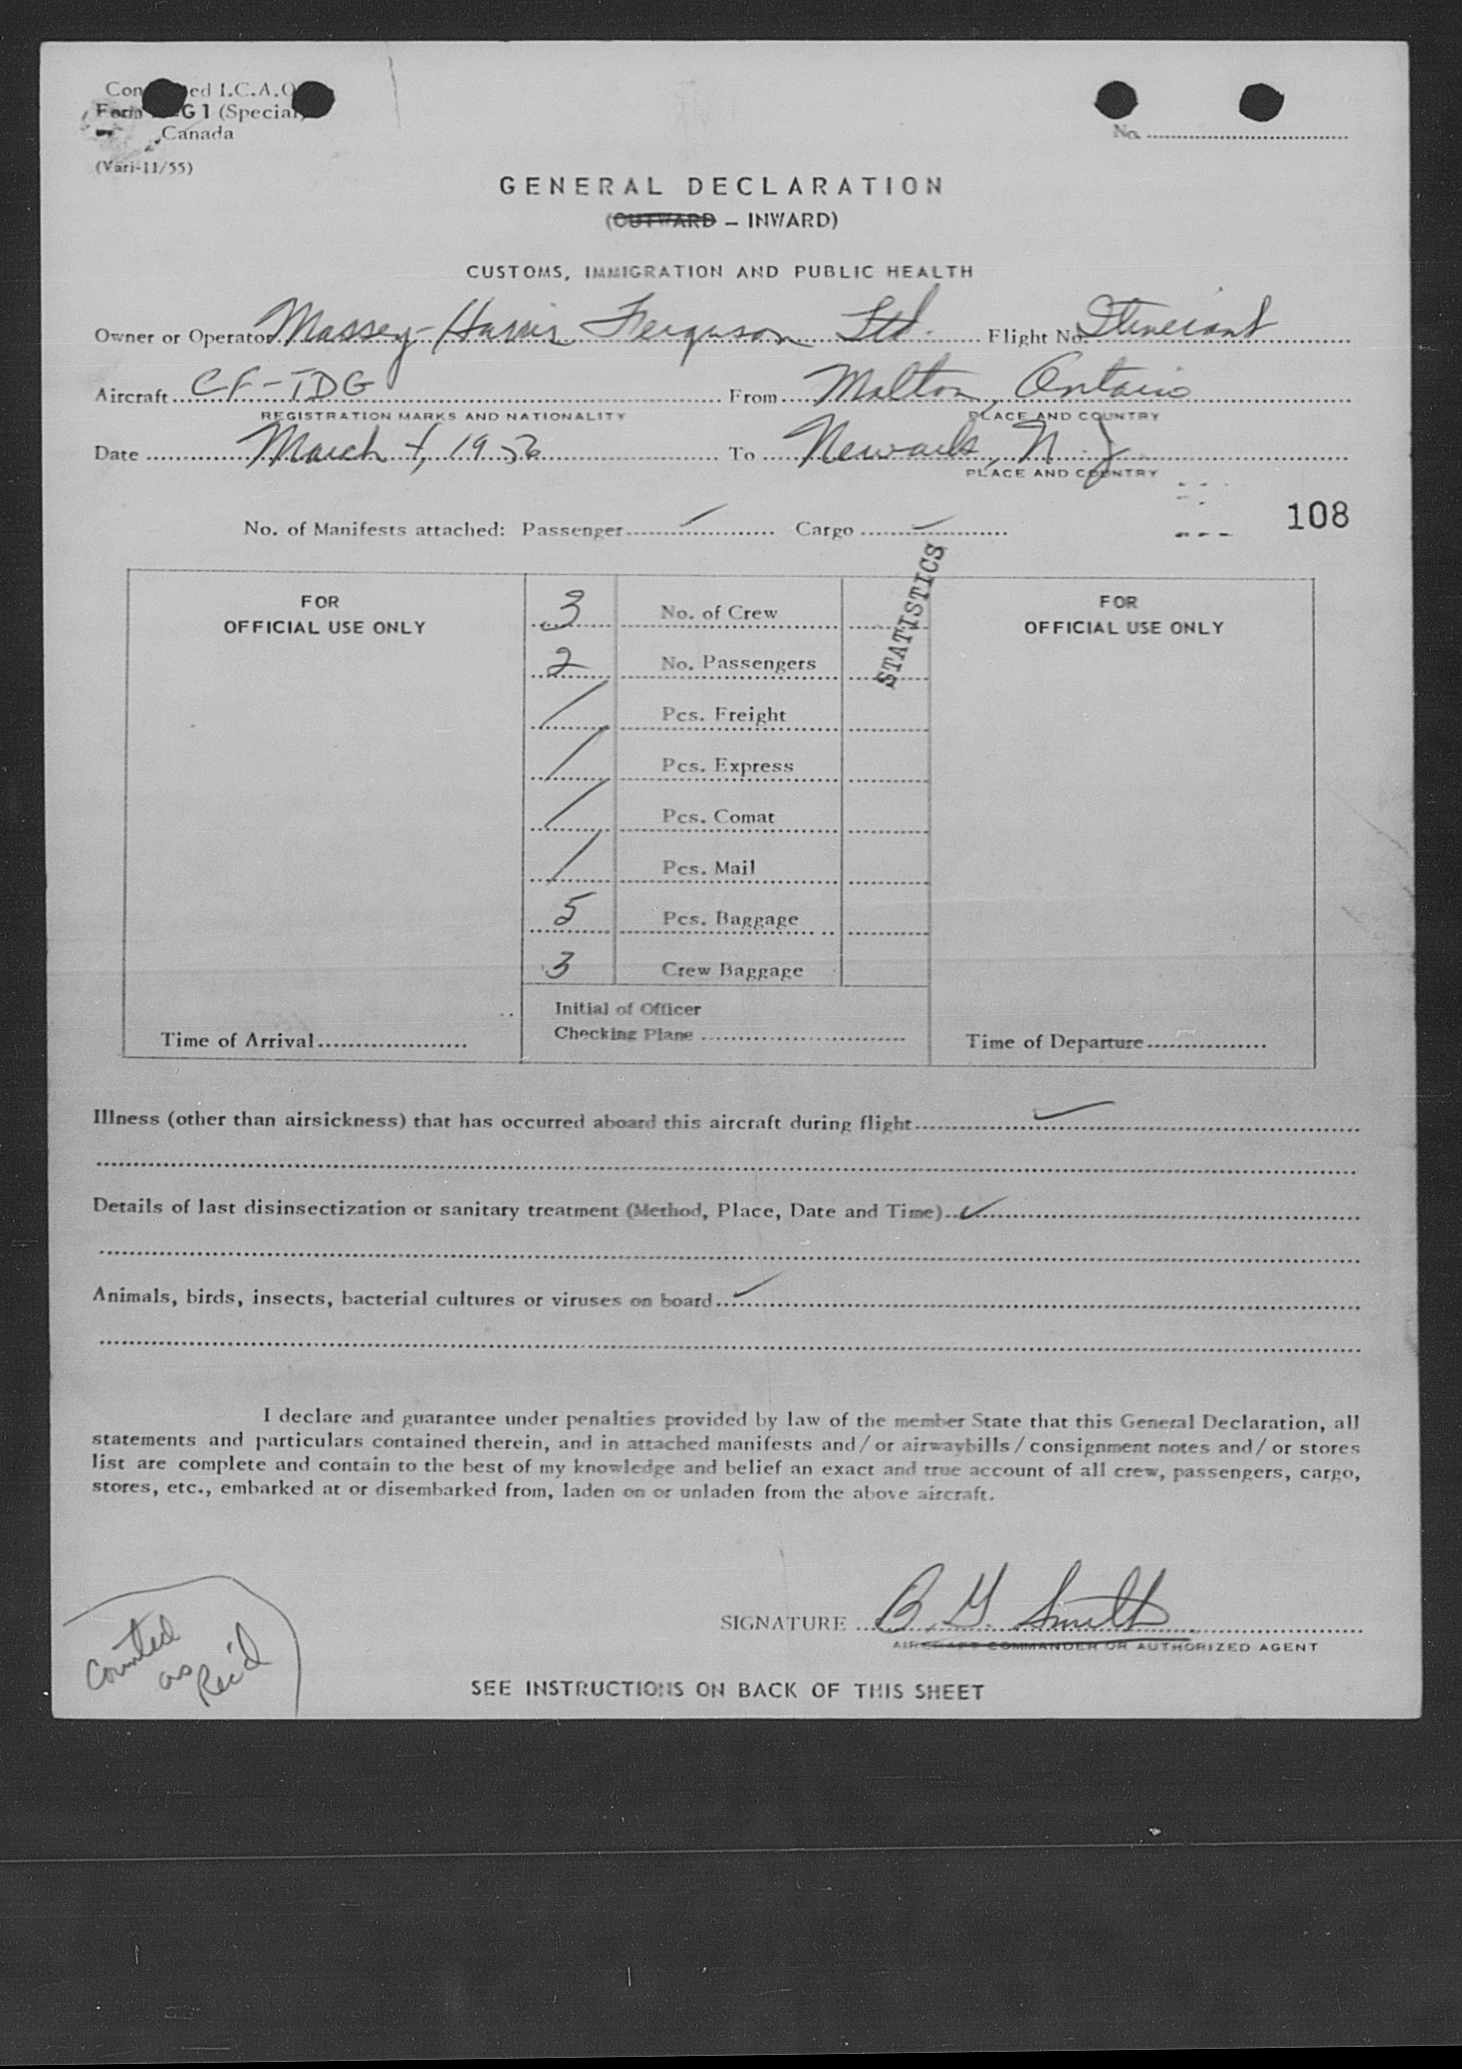 Con ed I.C.A.O
Form G 1 (Special)
Canada
(Vari-11/55)
No.
GENERAL DECLARATION
(OUTWARD – INWARD)
CUSTOMS, IMMIGRATION AND PUBLIC HEALTH
Owner or Operator Massey-Harris Ferguson Ltd. Flight No. Itinerant
Aircraft CF-TDG From Malton, Ontario
REGISTRATION MARKS AND NATIONALITY PLACE AND COUNTRY
Date March 1956 To Newark, N.J.
PLACE AND COUNTRY
108
No. of Manifests attached: Passenger Cargo
STATISTICS
FOR FOR
OFFICIAL USE ONLY OFFICIAL USE ONLY
3 No. of Crew
2 No. Passengers
/ Pcs. Freight
/ Pcs. Express
/ Pcs. Comat
/ Pcs. Mail
5 Pcs. Baggage
3 Crew Baggage
Initial of Officer
Time of Arrival Checking Plane Time of Departure
Illness (other than airsickness) that has occurred aboard this aircraft during flight
Details of last disinsectization or sanitary treatment (Method, Place, Date and Time)
Animals, birds, insects, bacterial cultures or viruses on board
I declare and guarantee under penalties provided by law of the member State that this General Declaration, all
statements and particulars contained therein, and in attached manifests and/or airwaybills/consignment notes and/or stores
list are complete and contain to the best of my knowledge and belief an exact and true account of all crew, passengers, cargo,
stores, etc., embarked at or disembarked from, laden on or unladen from the above aircraft.
SIGNATURE B. G. Smith
AIRCRAFT COMMANDER OR AUTHORIZED AGENT
Counted
as Rec'd
SEE INSTRUCTIONS ON BACK OF THIS SHEET